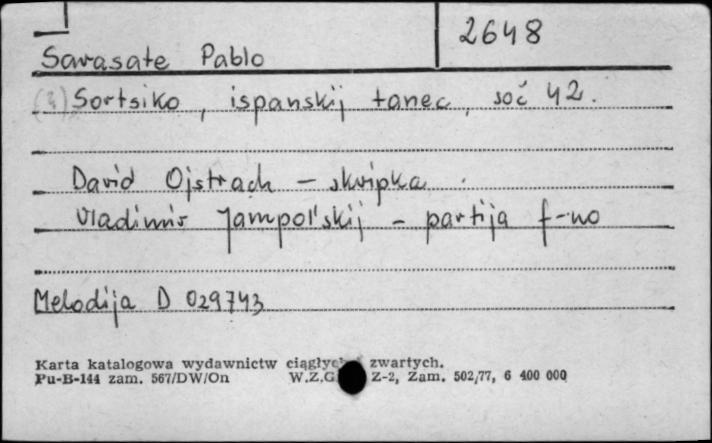 2648
Sarasate Pablo
(3) Sortsiko, ispanskij tanec, soč 42.
David Ojstrach - skripka.
Vladimir Jampol'skij - partija f-no
Melodija D 029743
Karta katalogowa wydawnictw zwartych.
Pu-B-144 zam. 567/DW/On W.Z.G. Z-2, Zam. 502/77, 6 400 000